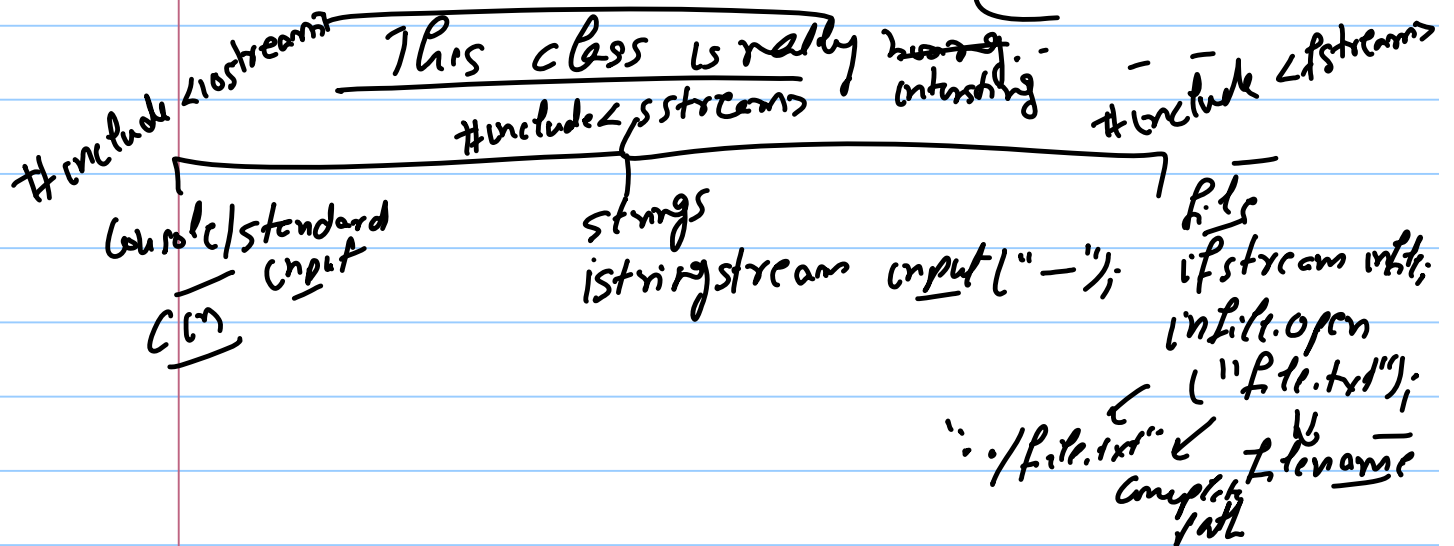 #include <iostream>
This class is really boring.
intersting
#include <fstream>
#include <sstream>
console/standard
input
cin
strings
istringstream input("—");
files
ifstream infile;
infile.open
("file.txt");
"../file.txt"
filename
complete
path